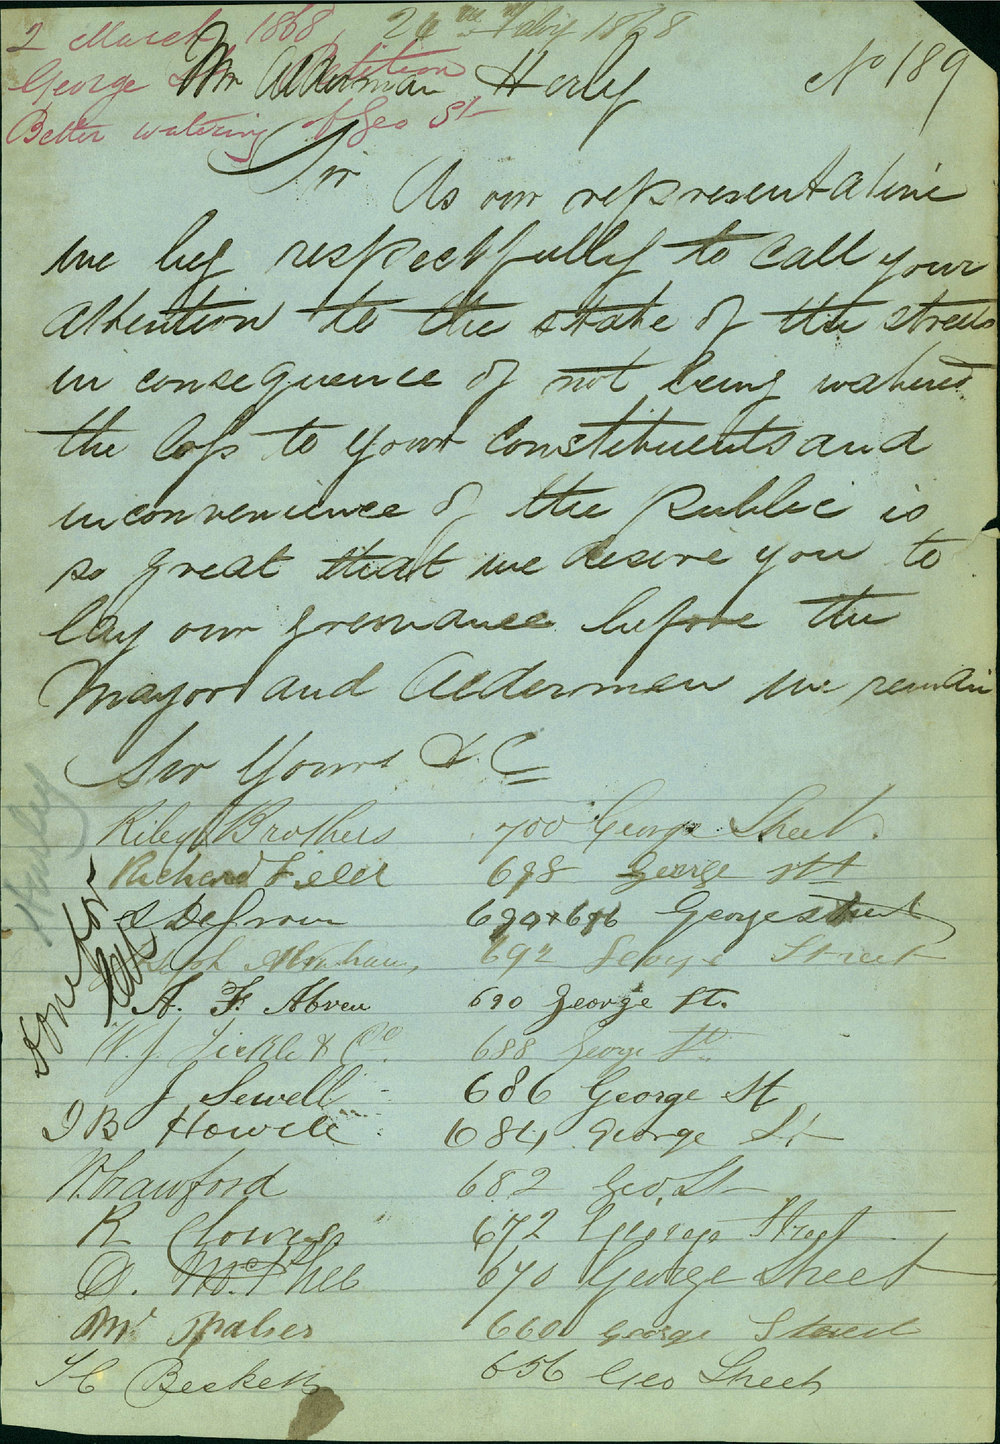 2 March 1868, 26th Feby 1868
George St Petition
Better watering of Geo St
No 189
Mr Alderman Hurley
Sir
As our representative
we beg respectfully to call your
attention to the state of the streets
in consequence of not being watered
the loss to your constituents and
inconvenience of the public is
so great that we desire you to
lay our greivance before the
Mayor and Aldermen we remain
Sir Yours &.C
Hurley
Riley Brothers 700 George Street.
Richard 698 George Stt
694 & 696 George Street
Joseph Abraham, 692 George Street
A. F. Abreu 690 George St.
W. J. & Co. 688 George St
J Sewell 686 George St
684 George St
Crawford 682 Geo. St
R 672 George Street
D. McPhee 670 George Street
Mr 660 George Street
Beckett 656 Geo Street